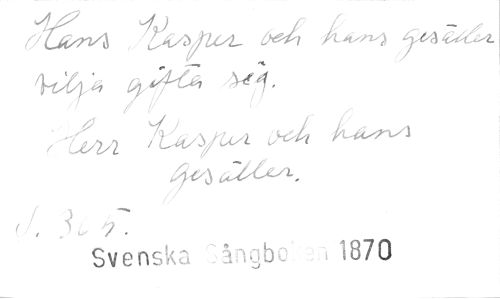 Hans Kasper och hans gesäller
vilja gifta sig.
Herr Kasper och hans
gesäller.
S. 365.
Svenska Sångboken 1870